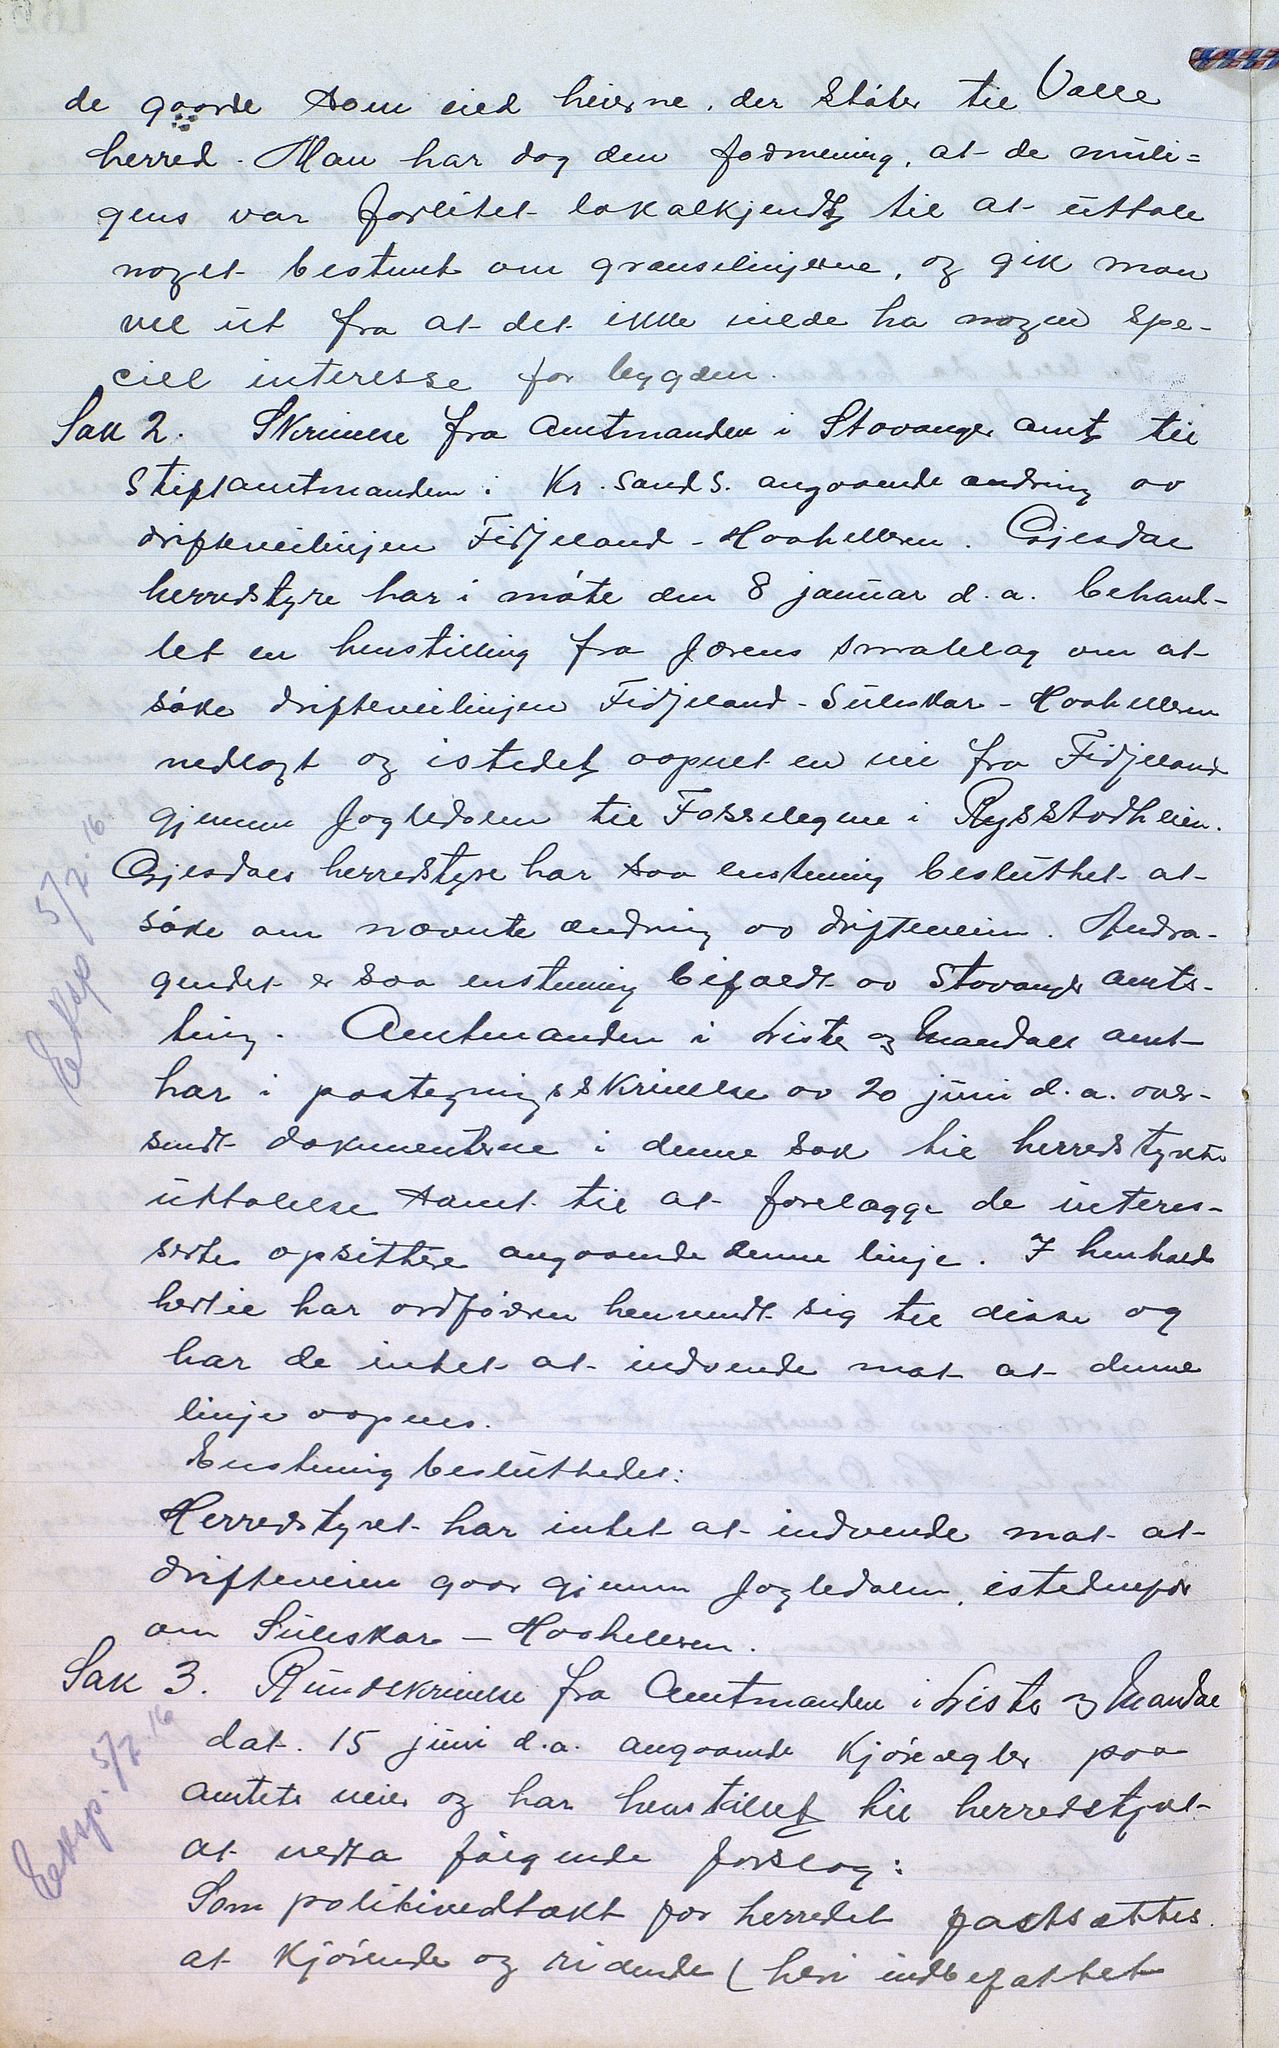 de gaarde som eied heierne, der støter til Valle
herred. Man har dog den formening, at de muli=
gens var forlitet lokalkjendt til at uttale
noget bestemt om grænselinjerne, og gik man
vel ut fra at det ikke vilde ha nogen spe-
ciell interesse for bygden.
Sak 2. Skrivelse fra amtmanden i Stavanger amt til
stiftamtmanden i Kr.sand S. angaaende ændring av
drifteveilinjen Fidjeland - Haahelleren. Gjesdal
herredstyre har i møte den 8 januar d.a. behand-
let en henstilling fra Jærens smalelag om at
søke drifteveilinjen Fidjeland - Suleskar - Haahelleren
nedlagt og istedet aapnet en vei fra Fidjeland
gjennem Jogledalen til Fosselegene i Rysstadheien.
Gjesdal herredstyre har saa enstemmig besluttet at
søke om nævnte ændring av drifteveien. Andra-
gendet er saa enstemmig bifaldt av Stavanger amts-
ting. Amtmanden i Lister og Mandals amt
har i paategningsskrivelse av 20 juni d.a. over-
sendt dokumenterne i denne sak til herredstyrets
uttalelse samt til at forelægge de interes-
serte opsittere angaaende denne linje. I henhold
hertil har ordføreren henvendt sig til disse og
har de intet at indvende mot at denne
linje aapnes.
Enstemmig besluttedes:
Herredstyret har intet at indvende mot at
drifteveien gaar gjennem Jogledalen, istedenfor
om Suleskar - Haahelleren.
Sak 3. Rundskrivelse fra Amtmanden i Lister og Mandal
dat. 15 juni d.a. angaaende kjøreregler paa
amtets veier og har henstillet til herredstyret
at vedta følgende forslag:
Som politivedtækt for herredet fastsættes
at kjørende og ridende (heri indbefattet
Eksp. 5/7.16
Eksp. 5/7.16